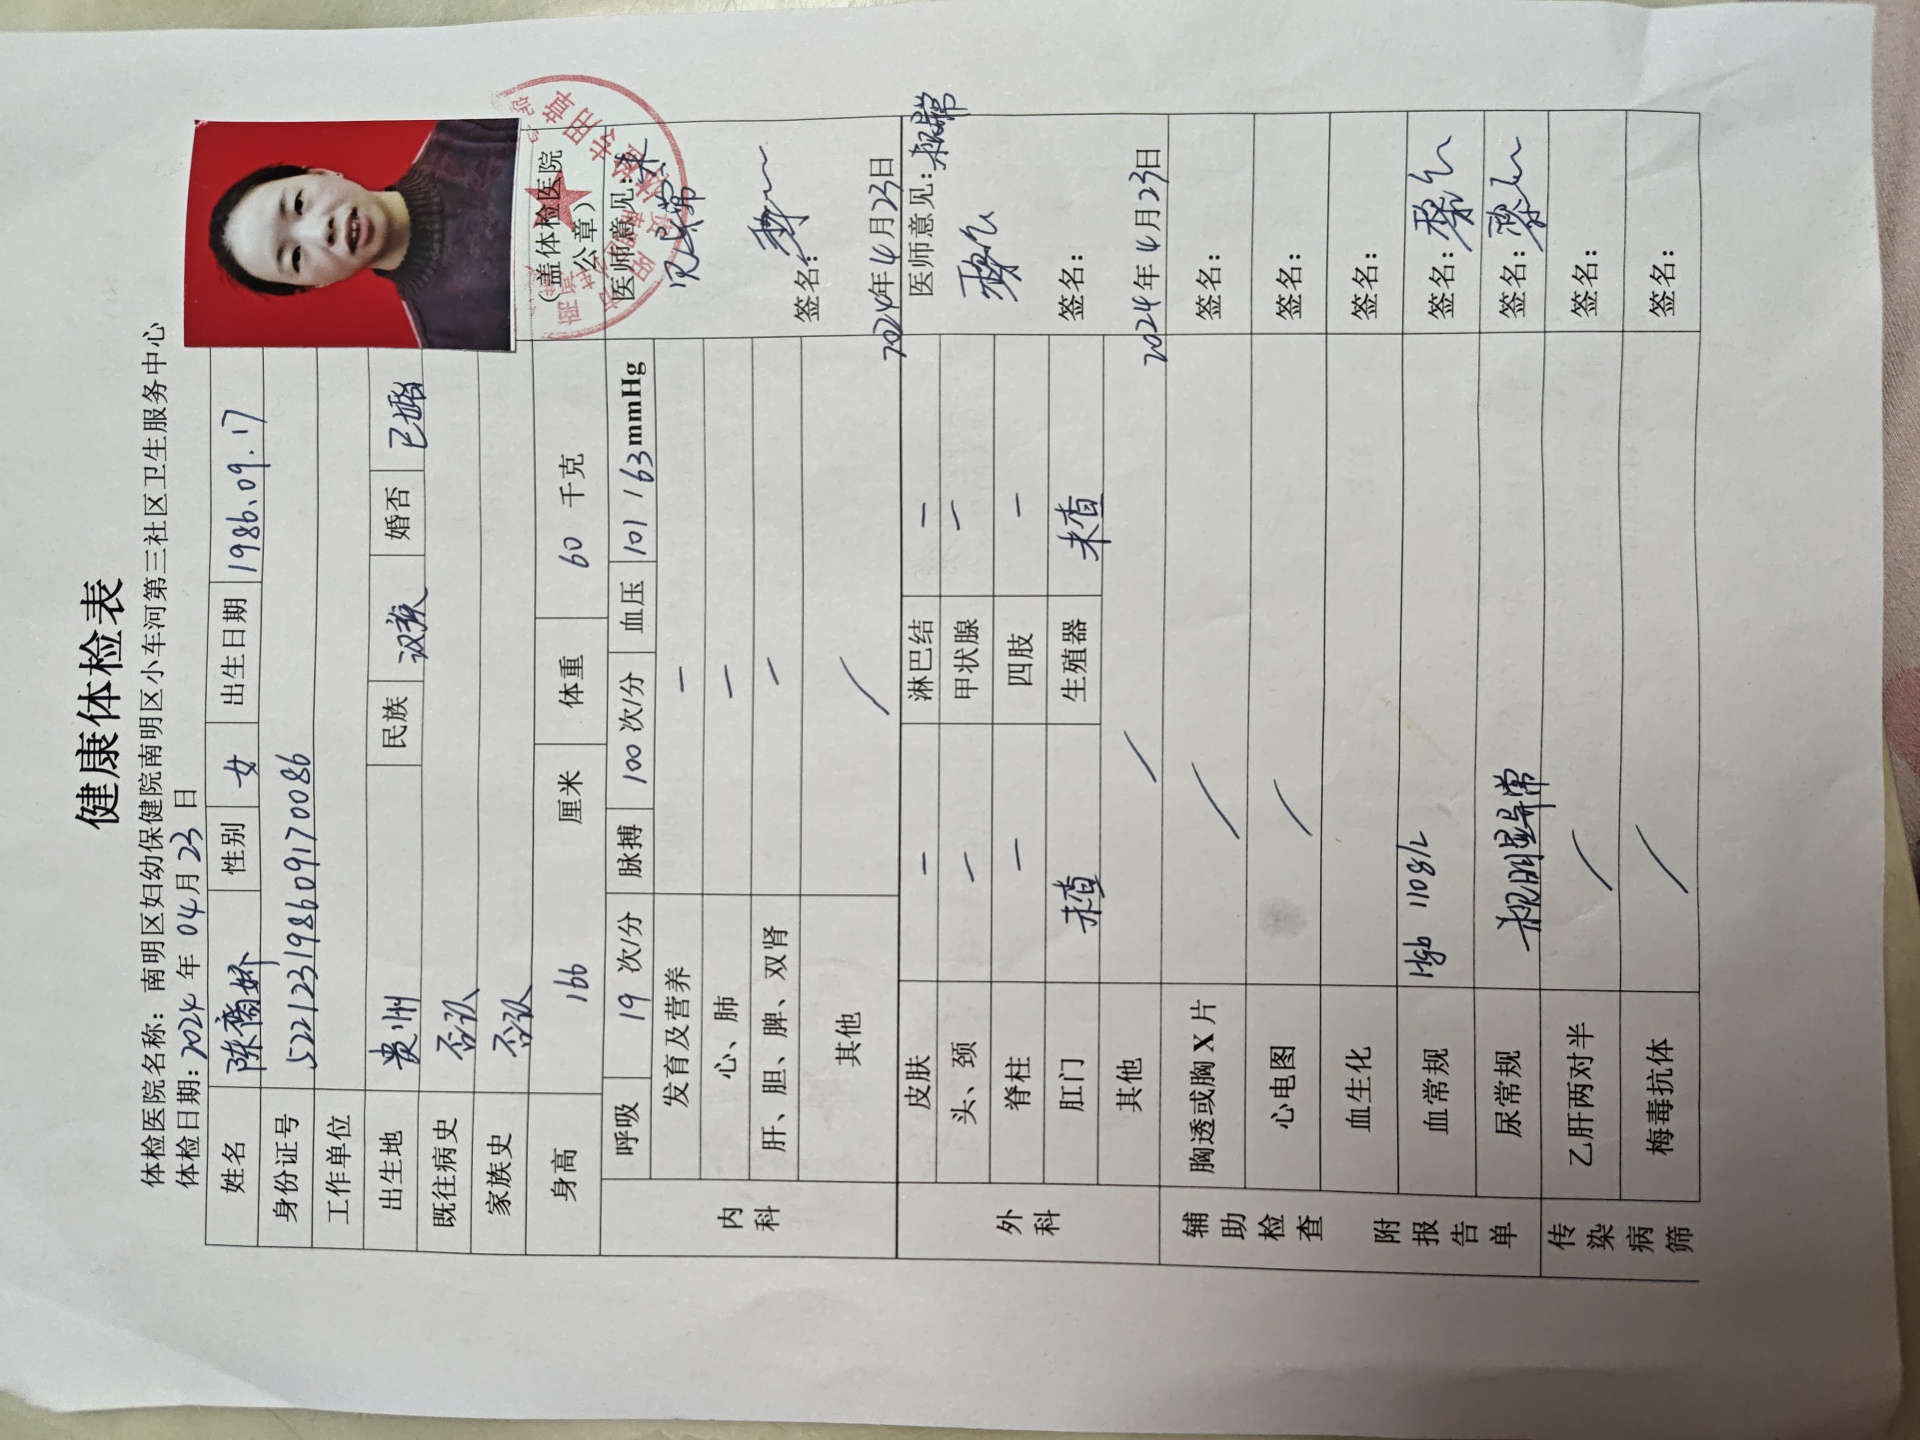 健康体检表
体检医院名称：南明区妇幼保健院南明区小车河第三社区卫生服务中心
体检日期：2024年04月23日
姓名 陈裔娇 性别 女 出生日期 1986.09.17
身份证号 522123198609170086
工作单位
出生地 贵州 民族 汉族 婚否 已婚
既往病史 否认
家族史 否认
（盖体检医院公章）
身高 166 厘米 体重 60 千克
呼吸 19 次/分 脉搏 100 次/分 血压 101/63mmHg
内科
发育及营养 —
心、肺 —
肝、胆、脾、双肾 —
其他 /
医师意见：未见异常
签名：
2024年4月23日
外科
皮肤 — 淋巴结 —
头、颈 — 甲状腺 —
脊柱 — 四肢 —
肛门 未查 生殖器 未查
其他 /
医师意见：未见异常
签名：
2024年4月23日
辅助检查 附报告单
胸透或胸X片 / 签名：
心电图 / 签名：
血生化 签名：
血常规 Hgb 110g/L 签名：
尿常规 未见明显异常 签名：
传染病筛
乙肝两对半 / 签名：
梅毒抗体 / 签名：